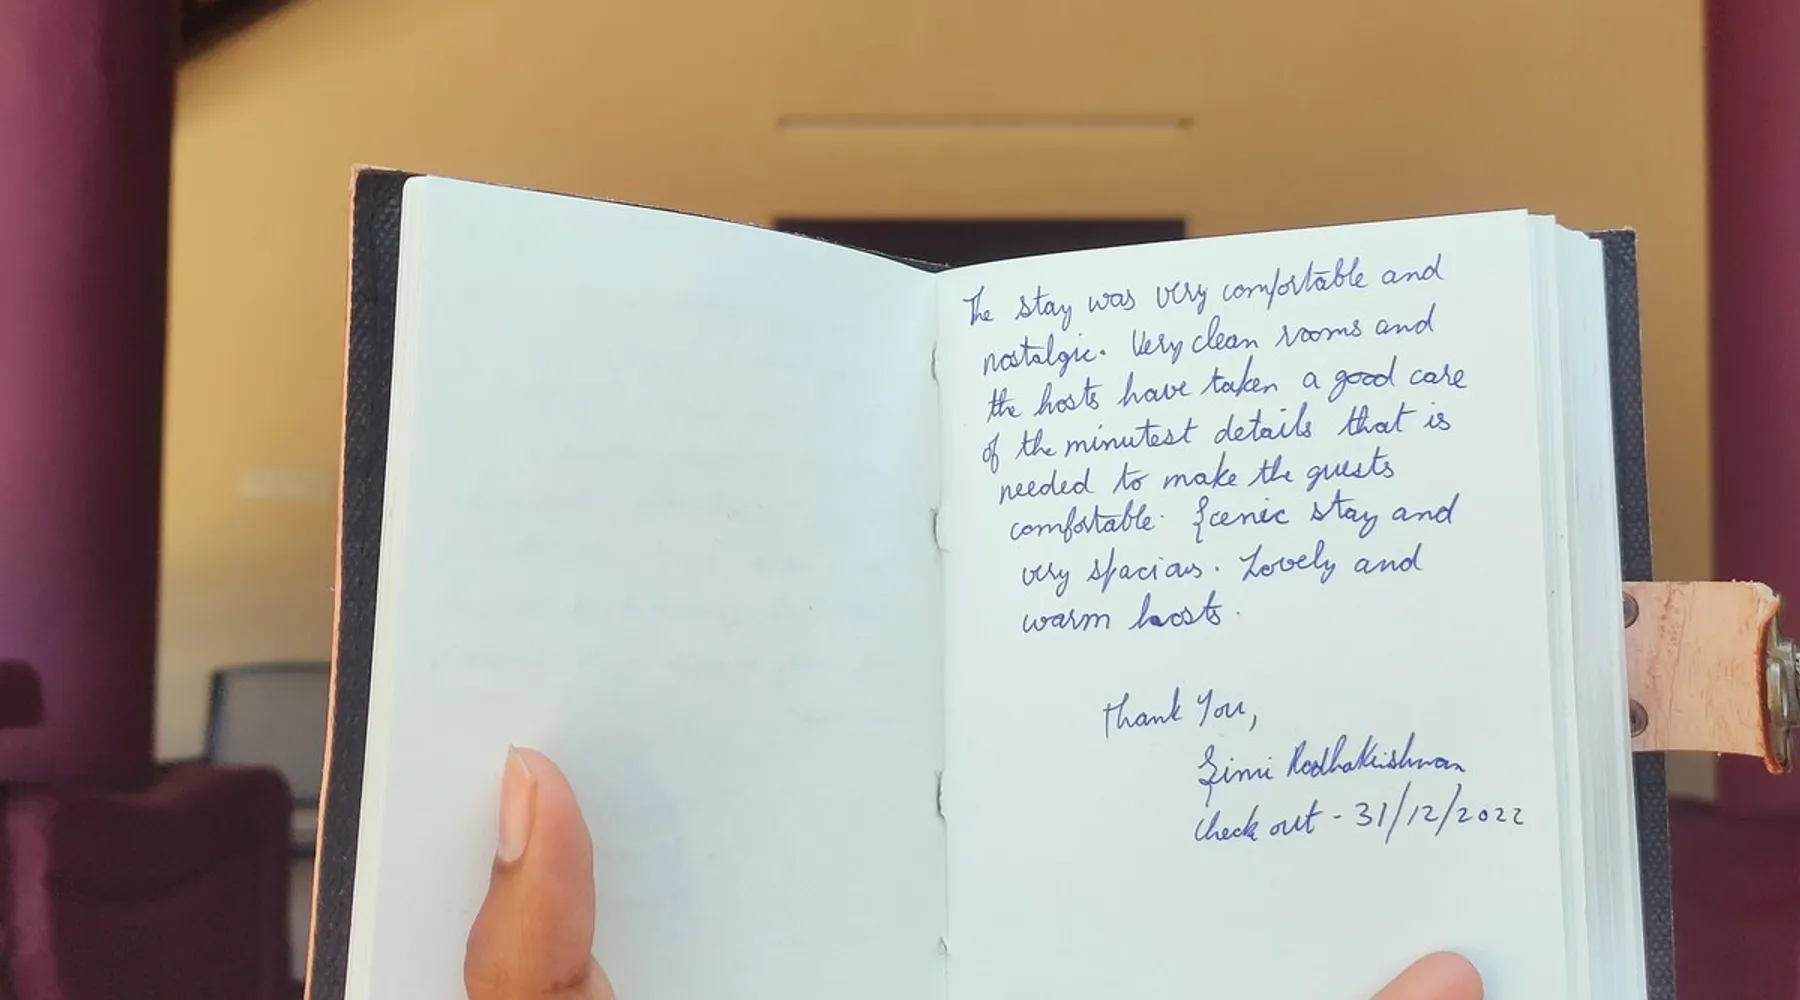 The stay was very comfortable and
nostalgic. Very clean rooms and
the hosts have taken a good care
of the minutest details that is
needed to make the guests
comfortable. Scenic stay and
very spacious. Lovely and
warm hosts.
Thank You,
Simi Radhakrishnan
Check out - 31/12/2022